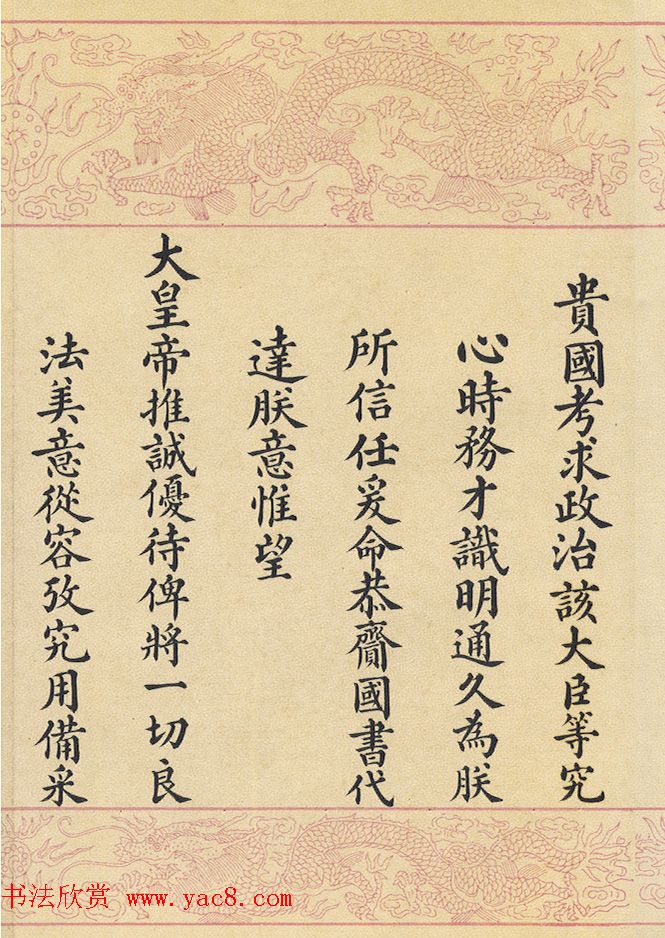 貴國考求政治該大臣等究
心時務才識明通久為朕
所信任爰命恭齎國書代
達朕意惟望
大皇帝推誠優待俾將一切良
法美意從容攷究用備采
书法欣赏 www.yac8.com